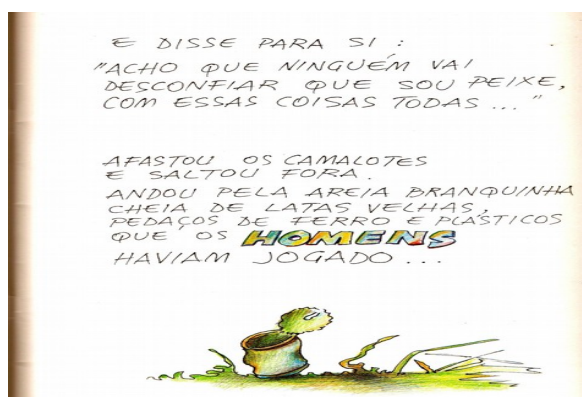 E DISSE PARA SI :
"ACHO QUE NINGUÉM VAI
DESCONFIAR QUE SOU PEIXE,
COM ESSAS COISAS TODAS ..."
AFASTOU OS CAMALOTES
E SALTOU FORA.
ANDOU PELA AREIA BRANQUINHA
CHEIA DE LATAS VELHAS,
PEDAÇOS DE FERRO E PLÁSTICOS
QUE OS HOMENS
HAVIAM JOGADO ...